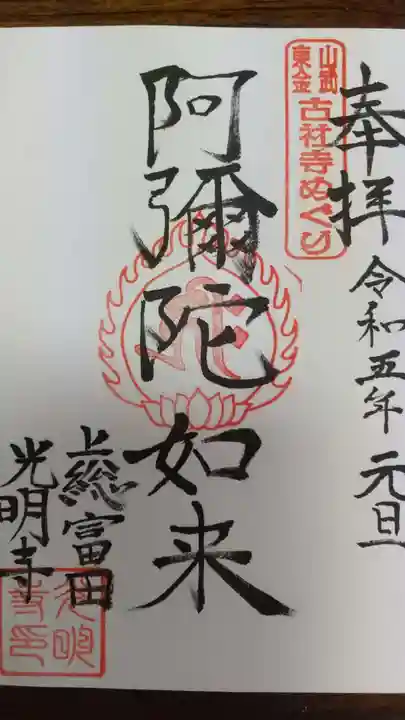 奉拝
令和五年 元旦
山武
東金
古社寺めぐり
阿彌陀如来
上総富田
光明寺
光明
寺印